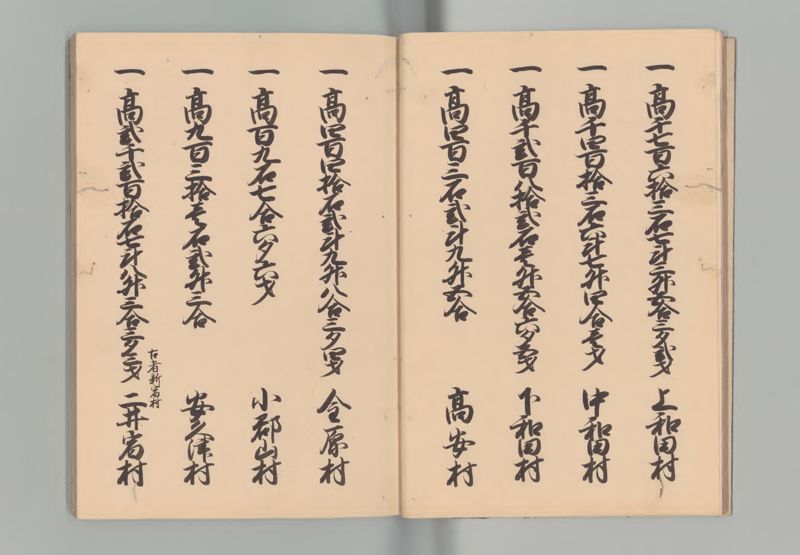 一高千七百六拾三石七斗三升五合三夕弐才 上和田村
一高千四百拾三石六斗七升四合壱才 中和田村
一高千弐百八拾弐石壱升五合六夕五才 下和田村
一高四百三石弐斗九升五合 高安村
一高四百四拾石弐斗九升八合三夕四才 金原村
一高百九石七合六夕六才 小郡山村
一高九百三拾壱石弐升三合 安久津村
一高弐千弐百拾石七斗八升三合三夕三才 二井宿村
古者新宿村